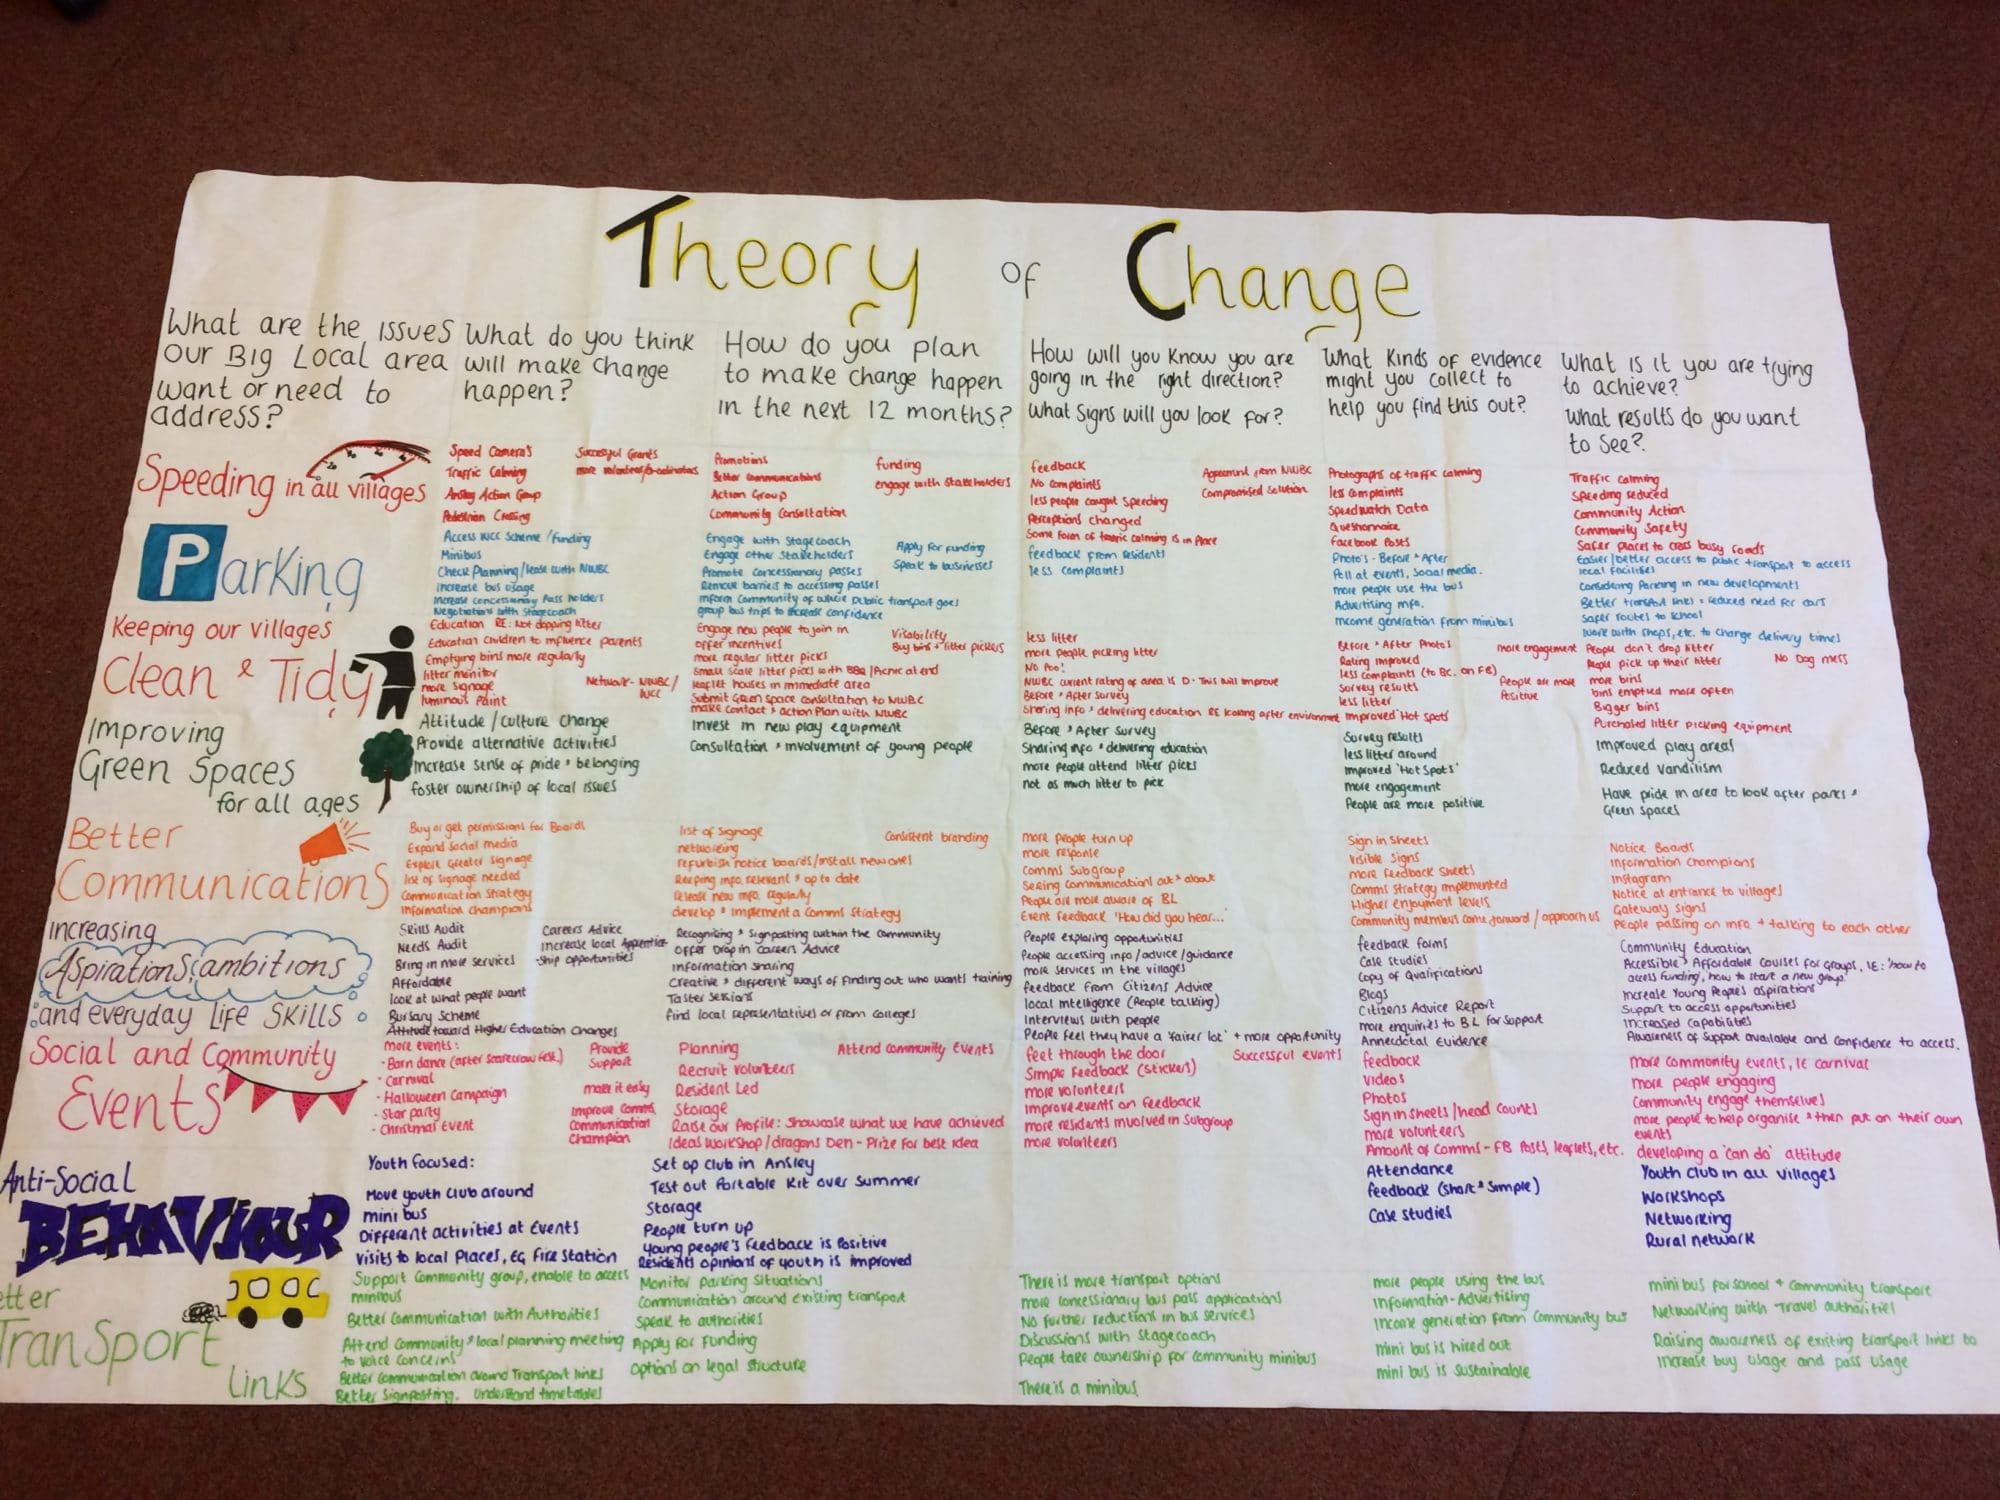 Theory of Change
What are the issues
our Big Local area
want or need to
address?
What do you think
will make change
happen?
How do you plan
to make change happen
in the next 12 months?
How will you know you are
going in the right direction?
What signs will you look for?
What kinds of evidence
might you collect to
help you find this out?
What is it you are trying
to achieve?
What results do you want
to see?
Speeding in all villages
Speed Camera's
Traffic Calming
Ansley Action Group
Pedestrian Crossing
Successful Grants
more volunteers/co-ordinators
Promotions
Better communications
Action Group
Community Consultation
funding
engage with stakeholders
feedback
No complaints
less people caught speeding
Perceptions changed
Some form of traffic calming is in place
Agreement from NWBC
Compromised solution
Photographs of traffic calming
less complaints
Speedwatch Data
Questionnaire
Facebook Posts
Traffic calming
Speeding reduced
Community Action
Community Safety
Safer places to cross busy roads
Parking
Access WCC Scheme/funding
Minibus
Check Planning/lease with NWBC
Increase bus usage
Increase concessionary pass holders
Negotiations with Stagecoach
Engage with Stagecoach
Engage other stakeholders
Promote concessionary passes
Remove barriers to accessing passes
Inform community of where public transport goes
group bus trips to increase confidence
Apply for funding
Speak to businesses
feedback from residents
less complaints
Photo's - Before & After
Poll at events, social media.
more people use the bus
Advertising info.
Income generation from minibus
Easier/better access to public transport to access
local facilities
Considering Parking in new developments
Better transport links = reduced need for cars
Safer routes to school
Work with shops, etc. to change delivery times
Keeping our villages
Clean & Tidy
Education RE: Not dropping litter
Education children to influence parents
Emptying bins more regularly
litter monitor
more signage
luminous paint
Network - NWBC/
WCC
Engage new people to join in
offer incentives
more regular litter picks
Small scale litter picks with BBQ/Picnic at end
leaflet houses in immediate area
Submit Green space consultation to NWBC
make contact & action plan with NWBC
Visability
Buy bins + litter pickers
less litter
more people picking litter
No Poo!
NWBC current rating of area is D. This will improve
Before & After survey
Sharing info & delivering education RE looking after environment
Before & After Photo's
Rating improved
less complaints (to BC. on FB)
Survey results
less litter
Improved 'Hot spots'
more engagement
People are more
positive
People don't drop litter
People pick up their litter
more bins
bins emptied more often
Bigger bins
Purchased litter picking equipment
No Dog mess
Improving
Green Spaces
for all ages
Attitude/culture change
Provide alternative activities
Increase sense of pride & belonging
foster ownership of local issues
Invest in new play equipment
Consultation & involvement of young people
Before & After survey
Sharing info & delivering education
more people attend litter picks
not as much litter to pick
Survey results
less litter around
Improved 'Hot Spots'
more engagement
People are more positive
Improved play areas
Reduced vandilism
Have pride in area to look after parks &
Green spaces
Better
Communications
Buy or get permissions for Boards
Expand social media
Explore Greater signage
list of signage needed
Communication Strategy
Information champions
list of signage
networking
refurbish notice boards/install new ones
Keeping info. relevant & up to date
release new info. regularly
develop & implement a Comms Strategy
Consistent branding
more people turn up
more response
Comms Subgroup
Seeing communications out & about
People are more aware of BL
Event feedback 'How did you hear...'
Sign in Sheets
Visible signs
more feedback sheets
Comms strategy implemented
Higher enjoyment levels
Community members come forward/approach us
Notice Boards
Information Champions
Instagram
Notice at entrance to villages
Gateway signs
People passing on info + talking to each other
Increasing
Aspirations, ambitions
and everyday Life SKILLS
Skills Audit
Needs Audit
Bring in more services
Affordable
look at what people want
Bursary Scheme
Attitude toward Higher Education Changes
Careers Advice
Increase local Apprentice
-ship opportunities
Recognising & signposting within the community
Offer Drop in Careers Advice
Information sharing
Creative & different ways of finding out who wants training
Taster sessions
Find local representatives or from colleges
People exploring opportunities
People accessing info/advice/guidance
more services in the villages
Feedback from Citizens Advice
local intelligence (People talking)
Interviews with people
People feel they have a 'fairer lot' + more opportunity
feedback forms
Case studies
Copy of Qualifications
Blogs
Citizens Advice Report
more enquiries to BL for support
Annecdotal Evidence
Community Education
Accessible & Affordable courses for groups, IE: 'how to
access funding', how to start a new group'
Increase Young People's aspirations
Support to access opportunities
Increased capabilities
Awareness of support available and confidence to access.
Social and Community
Events
more events:
- Barn dance (after scarecrow fest.)
- Carnival
- Halloween Campaign
- Star party
- Christmas Event
Provide
Support
make it easy
Improve Comms.
Communication
Champion
Planning
Recruit volunteers
Resident Led
Storage
Raise our Profile: Showcase what we have achieved
Ideas workshop/dragons Den - Prize for best idea
Attend community events
feet through the door
Simple feedback (stickers)
more volunteers
Improve events on feedback
more residents involved in Subgroup
more volunteers
Successful events
feedback
Videos
Photos
Sign in sheets/head counts
more volunteers
Amount of comms - FB posts, leaflets, etc.
more community events, IE carnival
more people engaging
Community engage themselves
more people to help organise & then put on their own
events
developing a 'can do' attitude
Anti-Social
BEHAVIOUR
Youth focused:
Move youth club around
mini bus
Different activities at Events
Visits to local places, EG Fire Station
Set up club in Ansley
Test out Portable Kit over summer
Storage
People turn up
Young people's feedback is positive
Residents opinions of youth is improved
Attendance
feedback (short & simple)
Case studies
Youth club in all villages
Workshops
Networking
Rural network
etter
Transport
links
Support community group, enable to access
minibus
Better communication with Authorities
Attend community & local planning meeting
to voice concerns
Better communication around Transport links
Better Signposting. Understand timetables
Monitor parking situations
Communication around existing transport
Speak to authorities
Apply for Funding
Options on legal structure
There is more transport options
more concessionary bus pass applications
No further reductions in bus services
Discussions with Stagecoach
People take ownership for community minibus
There is a minibus
more people using the bus
Information - Advertising
Income generation from community bus
mini bus is hired out
mini bus is sustainable
mini bus for school + community transport
Networking with Travel authorities
Raising awareness of existing transport links to
increase buy usage and pass usage